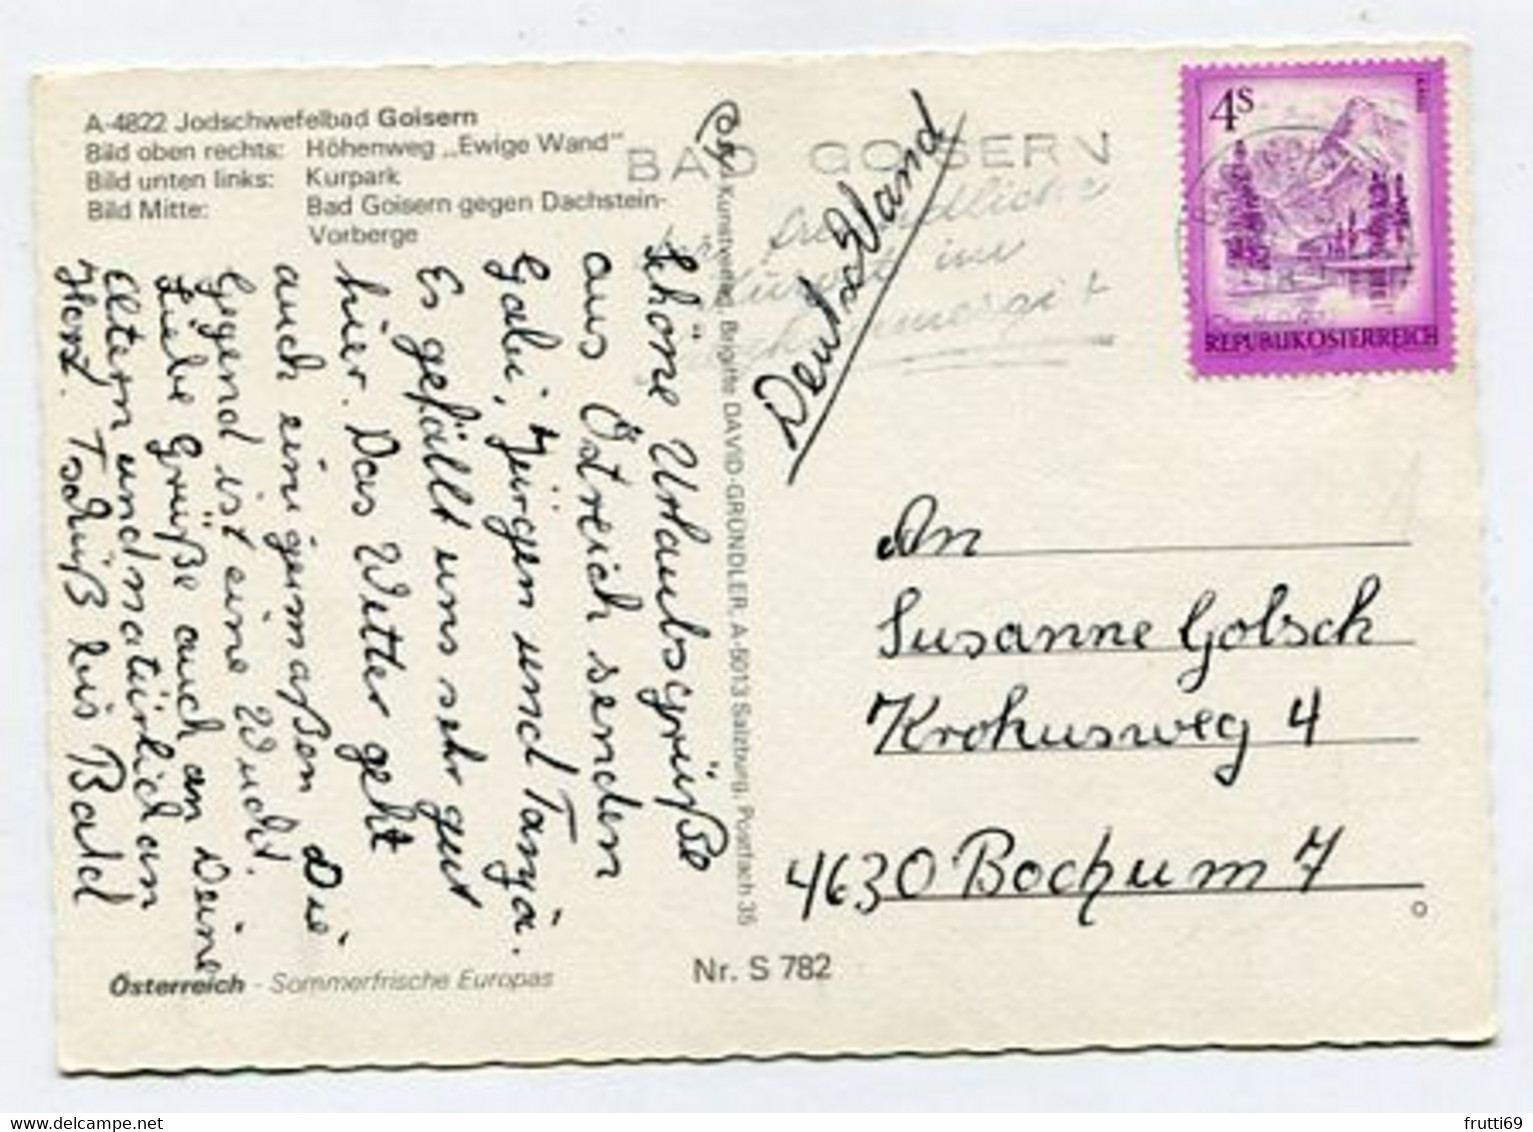 A-4822 Jodschwefelbad Goisern
Bild oben rechts: Höhenweg „Ewige Wand"
Bild unten links: Kurpark
Bild Mitte: Bad Goisern gegen Dachstein-
Vorberge
Schöne Urlaubsgrüße
aus Östreich senden
Gabi, Jürgen und Tanja.
Es gefällt uns sehr gut
hier. Das Wetter geht
auch einigermaßen Die
Gegend ist eine Wucht.
Liebe Grüße auch an Deine
Eltern und natürlich an
Horst. Tschüß bis Bald
Österreich - Sommerfrische Europas
Nr. S 782
Kunstverlag Brigitte DAVID-GRÜNDLER, A-5013 Salzburg, Postfach 35
BAD GOISERN
im
4S
REPUBLIK ÖSTERREICH
An
Susanne Golsch
Krokusweg 4
4630 Bochum 7
frutti69
delcampe.net